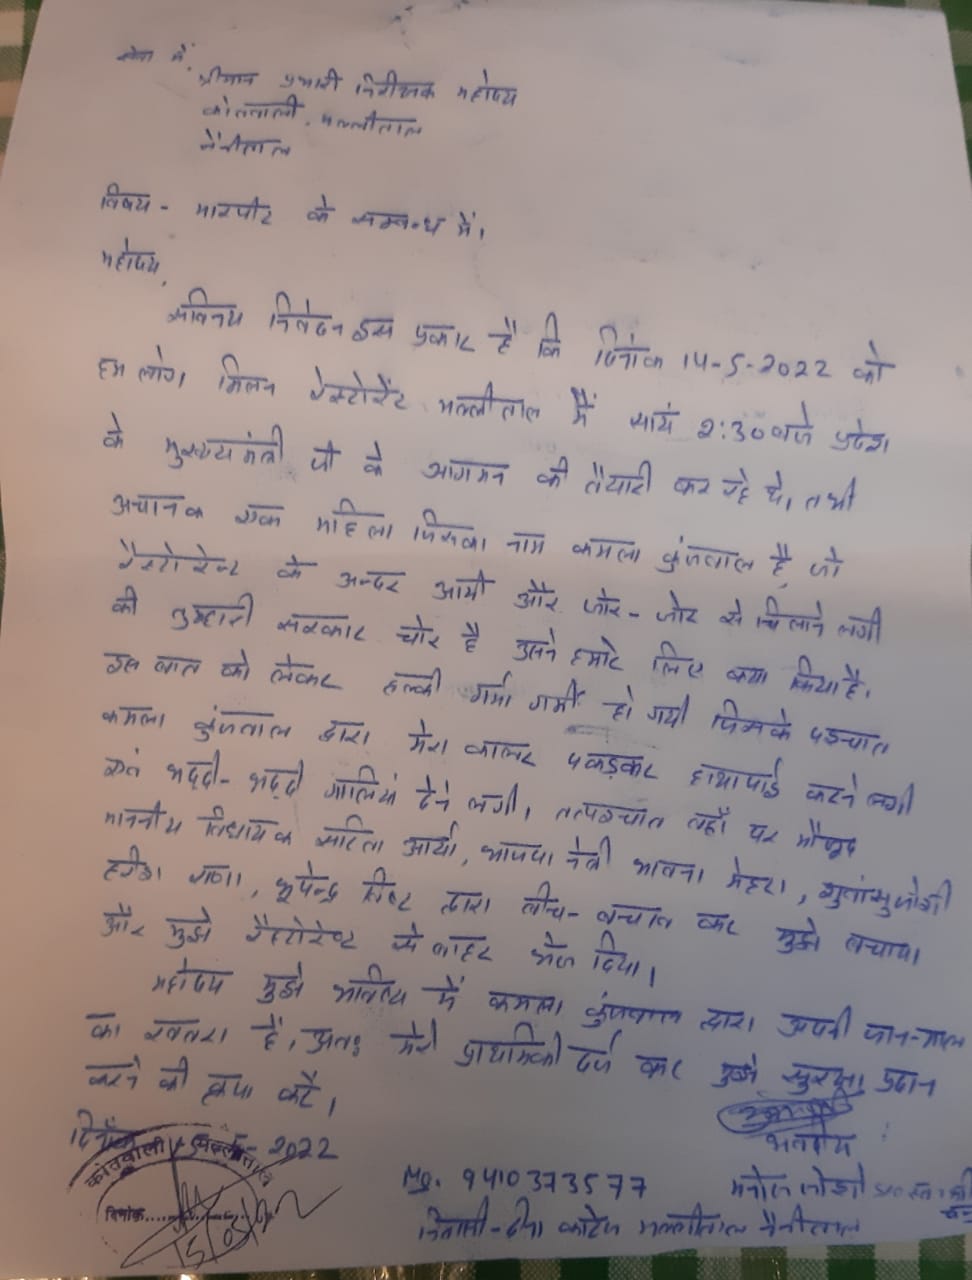 सेवा में,
श्रीमान प्रभारी निरीक्षक महोदय
कोतवाली, मल्लीताल
नैनीताल
विषय - मारपीट के सम्बन्ध में।
महोदय,
सविनय निवेदन इस प्रकार है कि दिनांक 14-5-2022 को
हम लोग मिलन रेस्टोरेंट मल्लीताल में सायं 2:30 बजे प्रदेश
के मुख्यमंत्री जी के आगमन की तैयारी कर रहे थे, तभी
अचानक एक महिला जिसका नाम कमला कुंजवाल है, जो
रैस्टोरेन्ट के अन्दर आयी और जोर-जोर से चिलाने लगी
की तुम्हारी सरकार चोर है उसने हमारे लिए क्या किया है।
इस बात को लेकर हल्की गर्मा गर्मी हो गयी जिसके पश्चात
कमला कुंजवाल द्वारा मेरा कालर पकड़कर हाथापाई करने लगी
एवं भद्दी-भद्दी गालियां देने लगी। तत्पश्चात वहाँ पर मौजूद
माननीय विधायक सरिता आर्या, भाजपा नेत्री भावना मेहरा,
हरीश राणा, भूपेन्द्र बिष्ट द्वारा बीच-बचाव कर मुझे बचाया
और मुझे रैस्टोरेन्ट से बाहर भेज दिया।
महोदय मुझे भविष्य में कमला कुंजवाल द्वारा अपनी जान-माल
का खतरा है, अतः मेरी प्राथमिकी दर्ज कर मुझे सुरक्षा प्रदान
करने की कृपा करें।
दिनांक 15-5-2022
भवदीय
Mo. 9410373577 मनोज जोशी
निवासी - कॉटेज मल्लीताल नैनीताल
कोतवाली मल्लीताल
दिनांक......
15/05/22